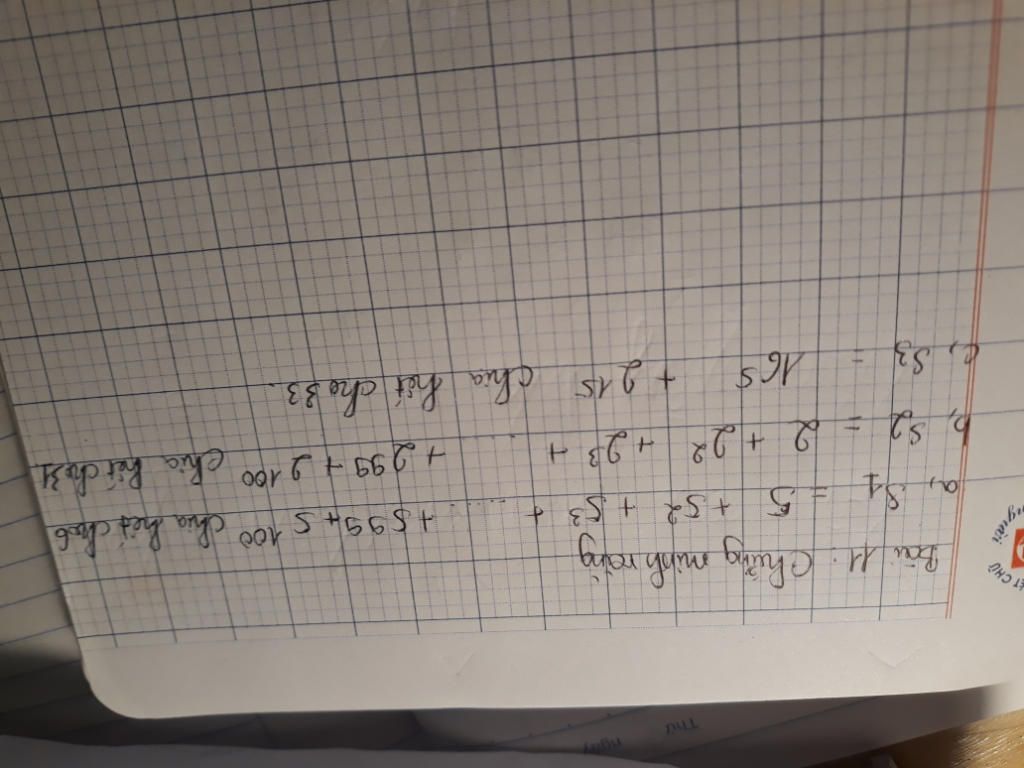 Bài 11: Chứng minh rằng
a, S1 = 5 + 52 + 53 + ..... + 599 + 5 100 chia hết cho 6
b, S2 = 2 + 22 + 23 + ..... + 299 + 2 100 chia hết cho 31
c, S3 = 165 + 215 chia hết cho 33.
Thứ
ngày